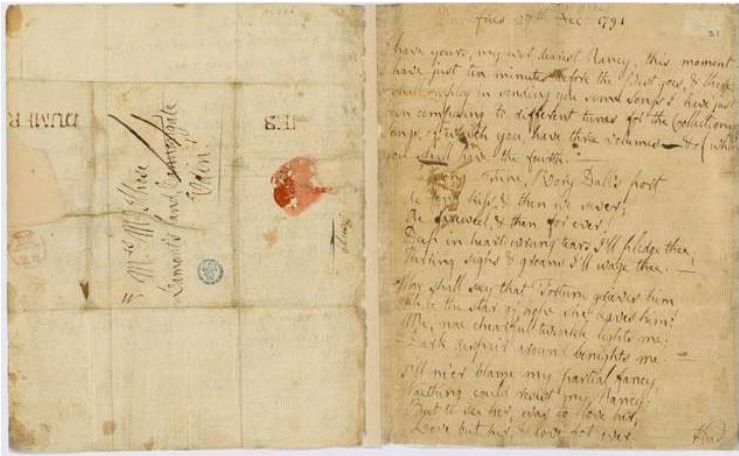 DUMFR
IES
Mrs McLehose
Lamont's Land Cannongate
Edin.r
Dumfries 27th Dec. 1791
21
have yours, my ever dearest Nancy, this moment
have just ten minutes before the Post goes, & these
shall employ in sending you some Songs I have just
been composing to different tunes for the Collection of
Songs, of which you have three volumes — & of which
you shall have the fourth. —
Song — Tune, Rory Dall's port
Ae fond kiss, & then we sever;
Ae fareweel, & then for ever!
Deep in heart-wrung tears I'll pledge thee,
Warring sighs & groans I'll wage thee. —
Wha shall say that Fortune grieves him
While the star of hope she leaves him:
Me, nae chearful twinkle lights me;
Dark despair around benights me. —
I'll ne'er blame my partial fancy,
Naething could resist my Nancy:
But to see her, was to love her;
Love but her, & love for ever.
Had